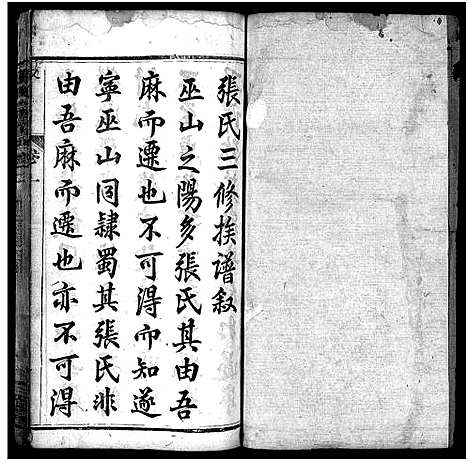 張氏三修族譜叙
巫山之陽多張氏其由吾
麻而遷也不可得而知遂
寧巫山同隸蜀其張氏非
由吾麻而遷也亦不可得